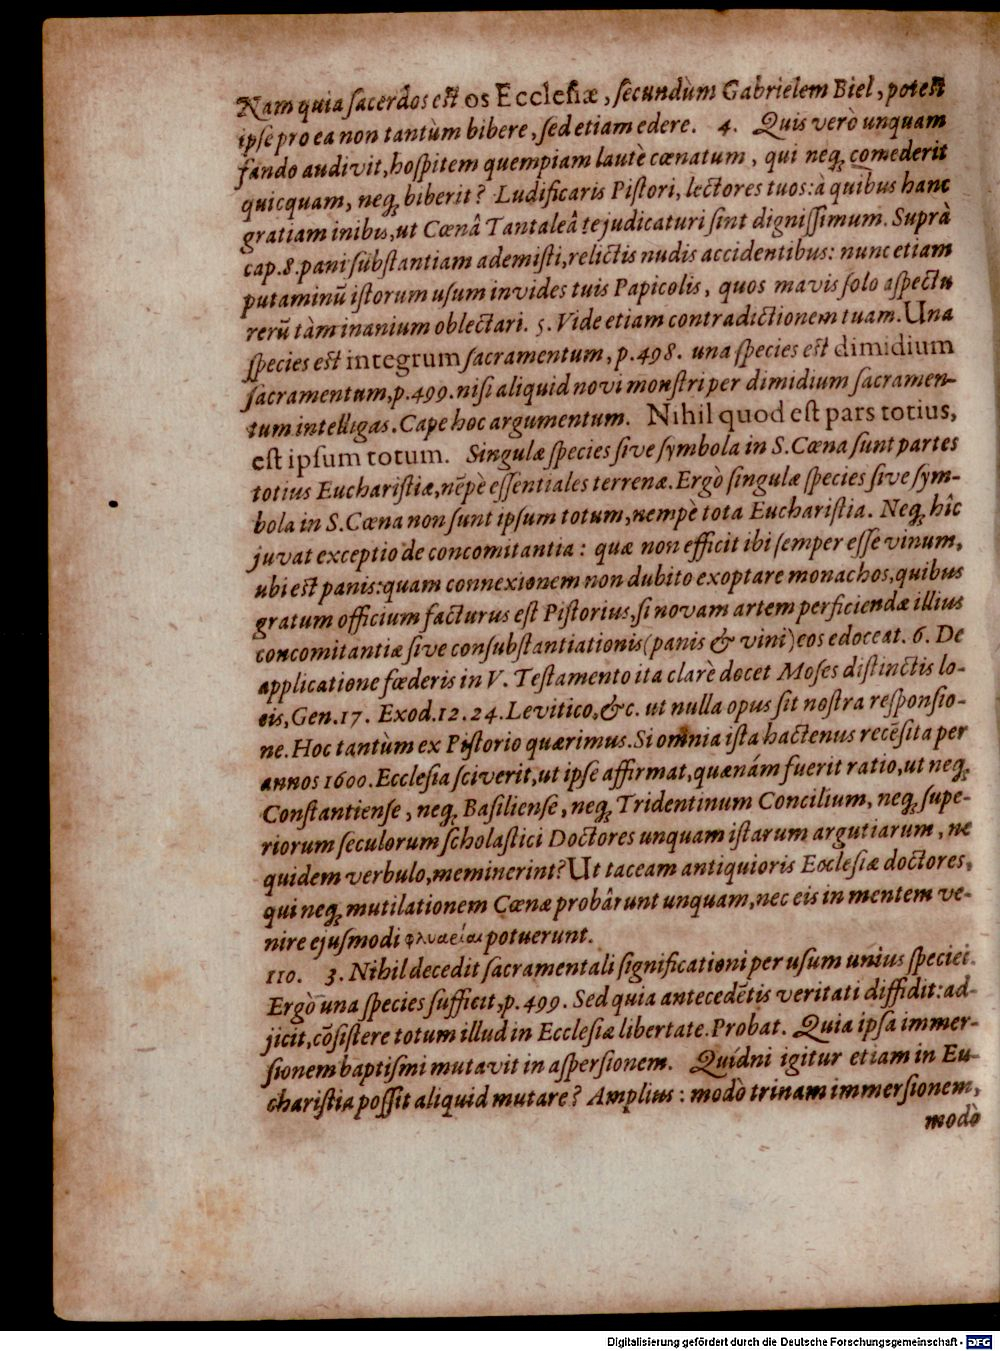 Nam quia ſacerdos eſt os Eccleſiæ, ſecundùm Gabrielem Biel, poteſt
ipſe pro ea non tantùm bibere, ſed etiam edere. 4. Quis verò unquam
fando audivit, hoſpitem quempiam lautè cœnatum, qui neq́; comederit
quicquam, neq́; biberit? Ludificaris Piſtori, lectores tuos: à quibus hanc
gratiam inibis, ut Cœnâ Tantaleâ te judicaturi ſint digniſſimum. Suprà
cap. 8. pani ſubſtantiam ademiſti, relictis nudis accidentibus: nunc etiam
putaminũ iſtorum uſum invides tuis Papicolis, quos mavis ſolo aſpectu
rerũ tàm inanium oblectari. 5. Vide etiam contradictionem tuam. Una
ſpecies eſt integrum ſacramentum, p. 498. una ſpecies eſt dimidium
ſacramentum, p. 499. niſi aliquid novi monſtri per dimidium ſacramen-
tum intelligas. Cape hoc argumentum. Nihil quod eſt pars totius,
eſt ipſum totum. Singulæ ſpecies ſive ſymbola in S. Cœna ſunt partes
totius Euchariſtiæ, nẽpè eſſentiales terrenæ. Ergò ſingulæ ſpecies ſive ſym-
bola in S. Cœna non ſunt ipſum totum, nempè tota Euchariſtia. Neq́; hîc
juvat exceptio de concomitantia: quæ non efficit ibi ſemper eſſe vinum,
ubi eſt panis: quam connexionem non dubito exoptare monachos, quibus
gratum officium facturus eſt Piſtorius, ſi novam artem perficiendæ illius
concomitantiæ ſive conſubſtantiationis (panis & vini) eos edoceat. 6. De
applicatione fœderis in V. Teſtamento ita clarè docet Moſes diſtinctis lo-
cis, Gen. 17. Exod. 12. 24. Levitico, &c. ut nulla opus ſit noſtra reſponſio-
ne. Hoc tantùm ex Piſtorio quærimus. Si omnia iſta hactenus recẽſita per
annos 1600. Eccleſia ſciverit, ut ipſe affirmat, quænám fuerit ratio, ut neq́;
Conſtantienſe, neq́; Baſilienſe, neq́; Tridentinum Concilium, neq́; ſupe-
riorum ſeculorum ſcholaſtici Doctores unquam iſtarum argutiarum, ne
quidem verbulo, meminerint? Ut taceam antiquioris Eccleſiæ doctores,
qui neq́; mutilationem Cœnæ probârunt unquam, nec eis in mentem ve-
nire ejuſmodi φλυαρίαι potuerunt.
110. 3. Nihil decedit ſacramentali ſignificationi per uſum unius ſpeciei.
Ergò una ſpecies ſufficit, p. 499. Sed quia antecedẽtis veritati diffidit: ad-
jicit, cõſiſtere totum illud in Eccleſiæ libertate. Probat. Quia ipſa immer-
ſionem baptiſmi mutavit in aſperſionem. Quidni igitur etiam in Eu-
chariſtia poſſit aliquid mutare? Amplius: modò trinam immerſionem,
modò
Digitalisierung gefördert durch die Deutsche Forschungsgemeinschaft - DFG